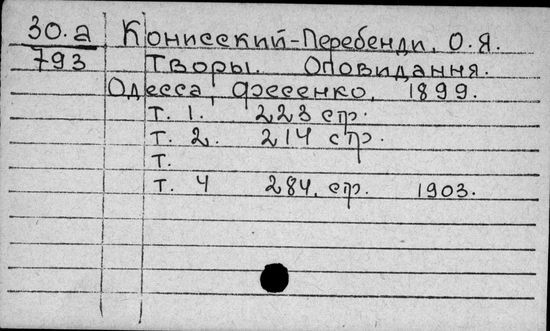 30.а Конисский-Перебендя, О.Я.
793 Творы. Оповидання.
Одесса, Фесенко, 1899.
т. 1. 223 стр.
т. 2. 214 стр.
т.
т. 4 284. стр. 1903.